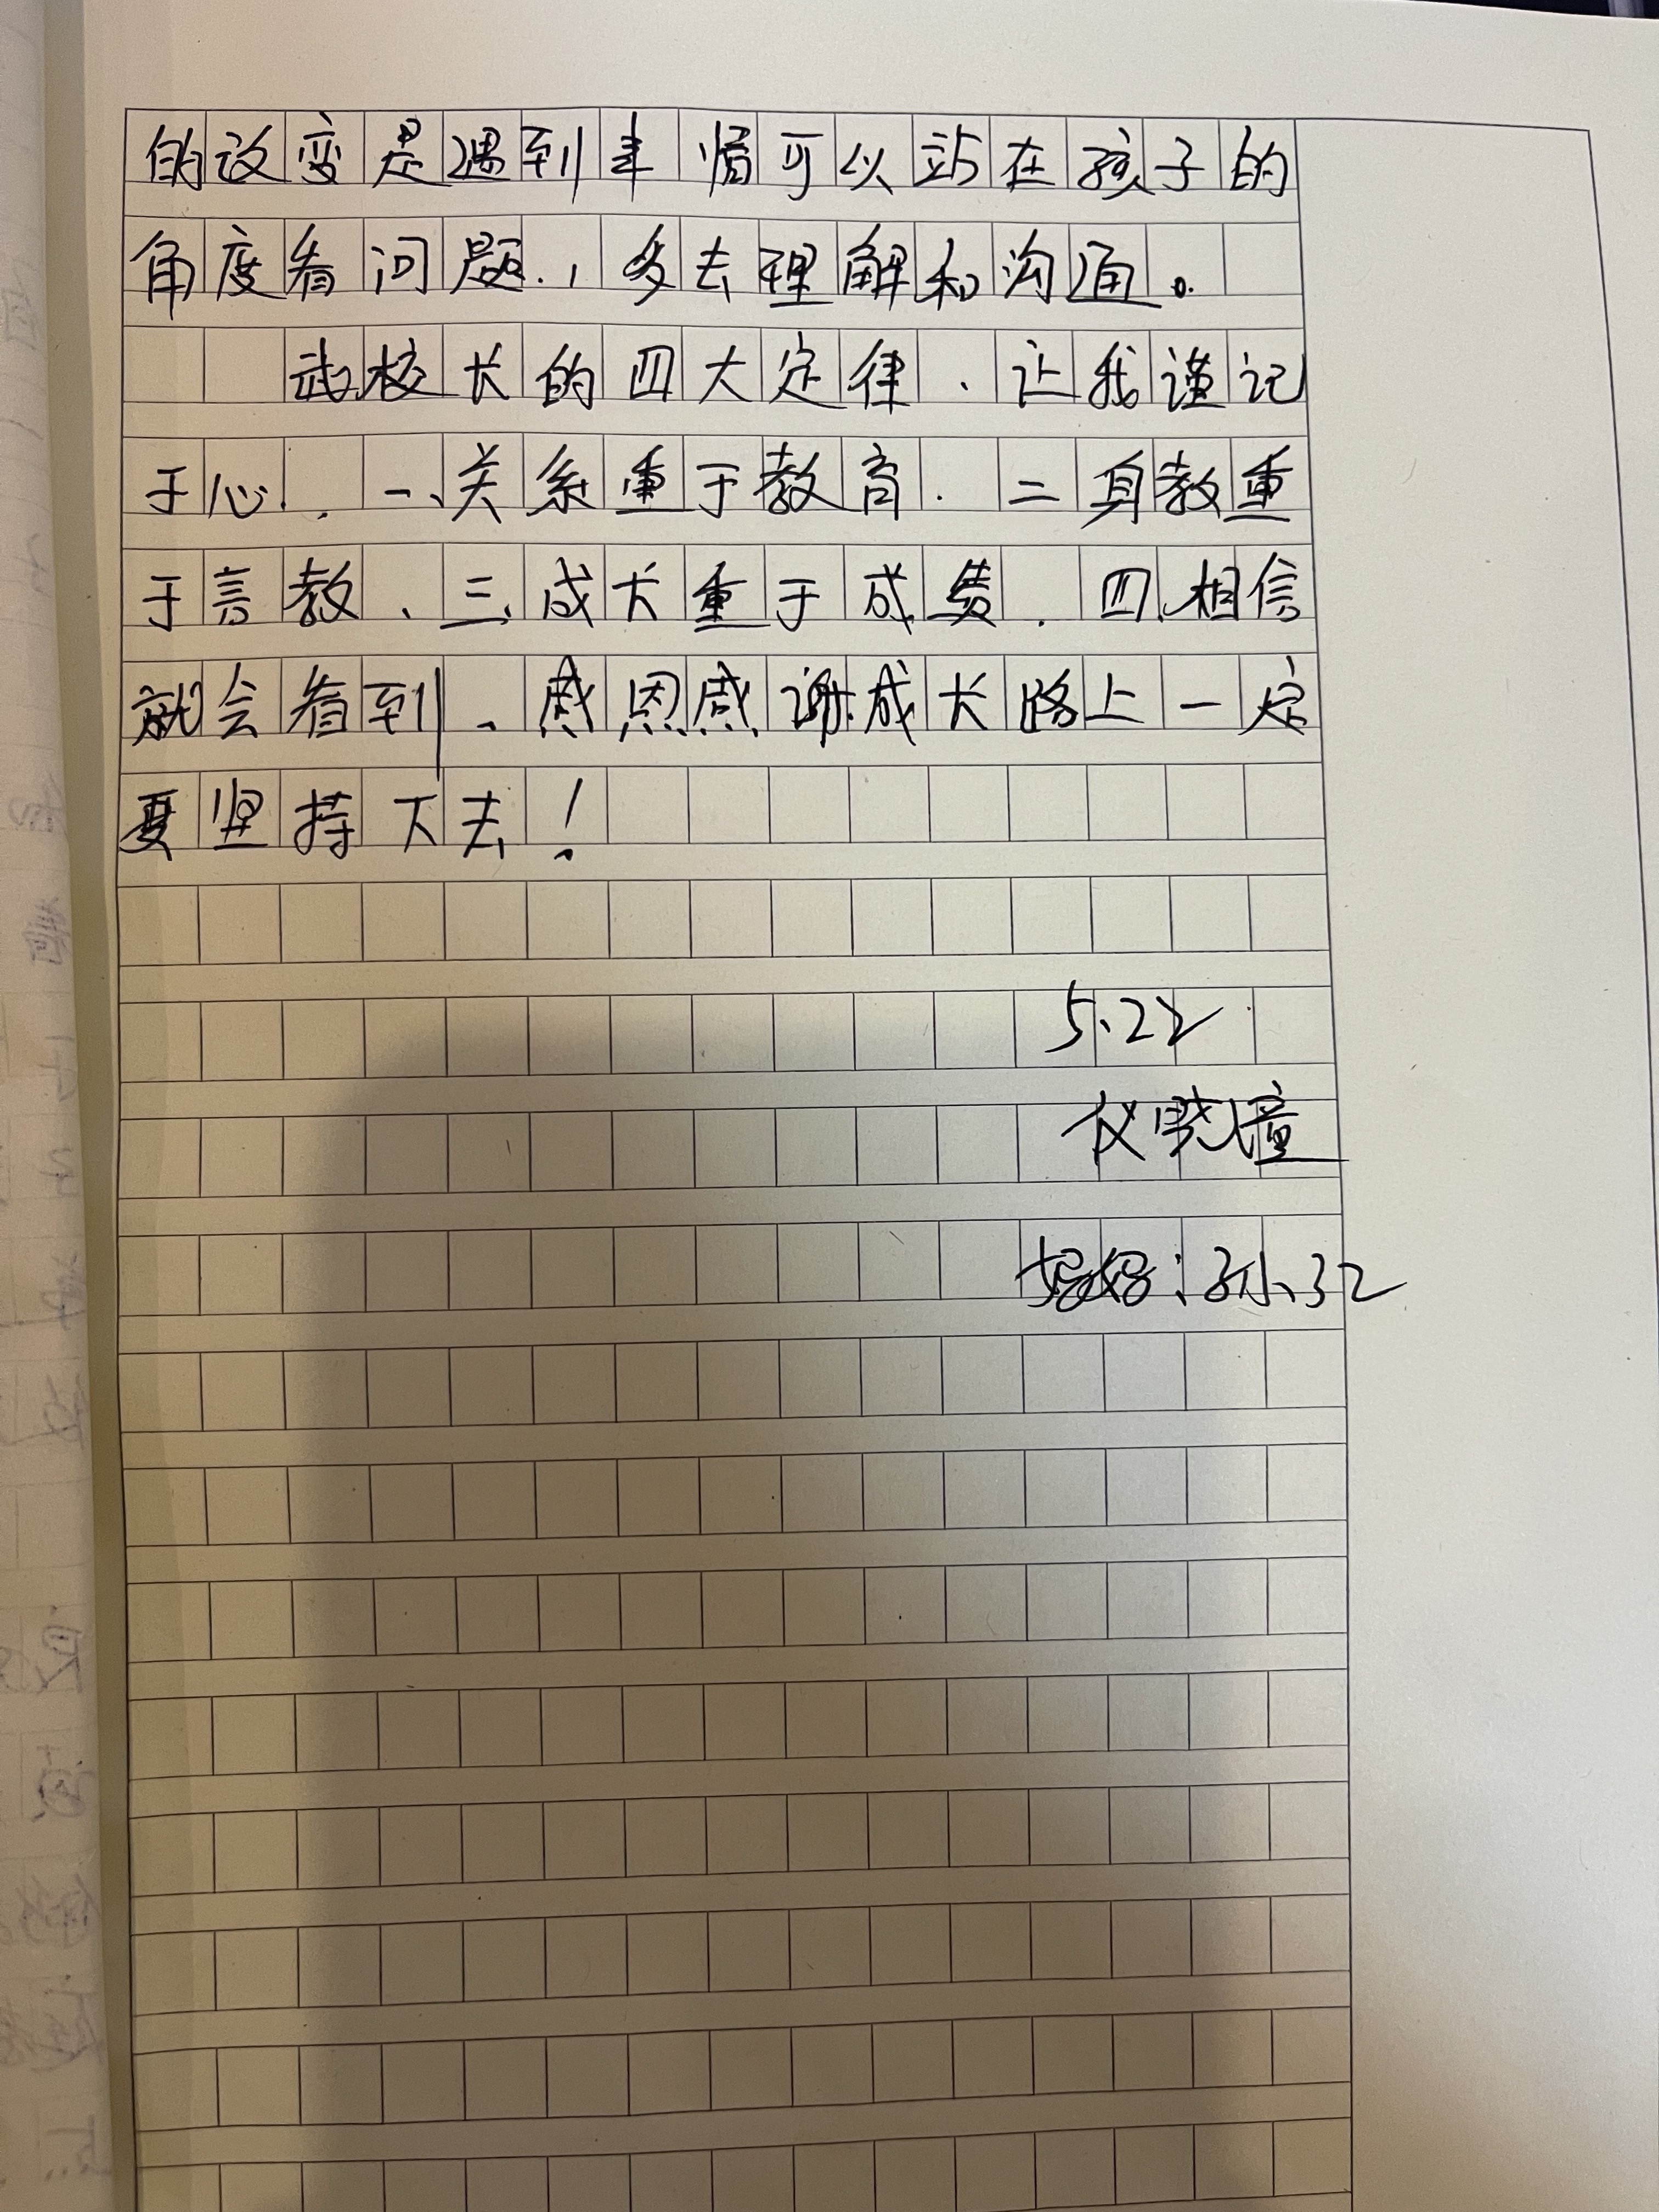 的改变是遇到事情可以站在孩子的
角度看问题.，多去理解和沟通。
武校长的四大定律、让我谨记
于心.．一、关系重于教育．二身教重
于言教、三、成长重于成绩．四、相信
就会看到、感恩感谢成长路上一定
要坚持下去！
5、22
仪晓瞳
妈妈：孙、